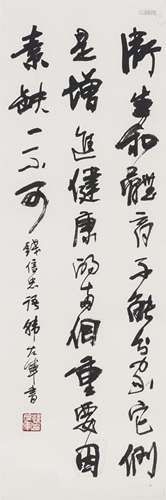 衛生和體育不能分家它們
是增進健康的兩個重要因
素缺一不可
錢信忠語韩左軍書